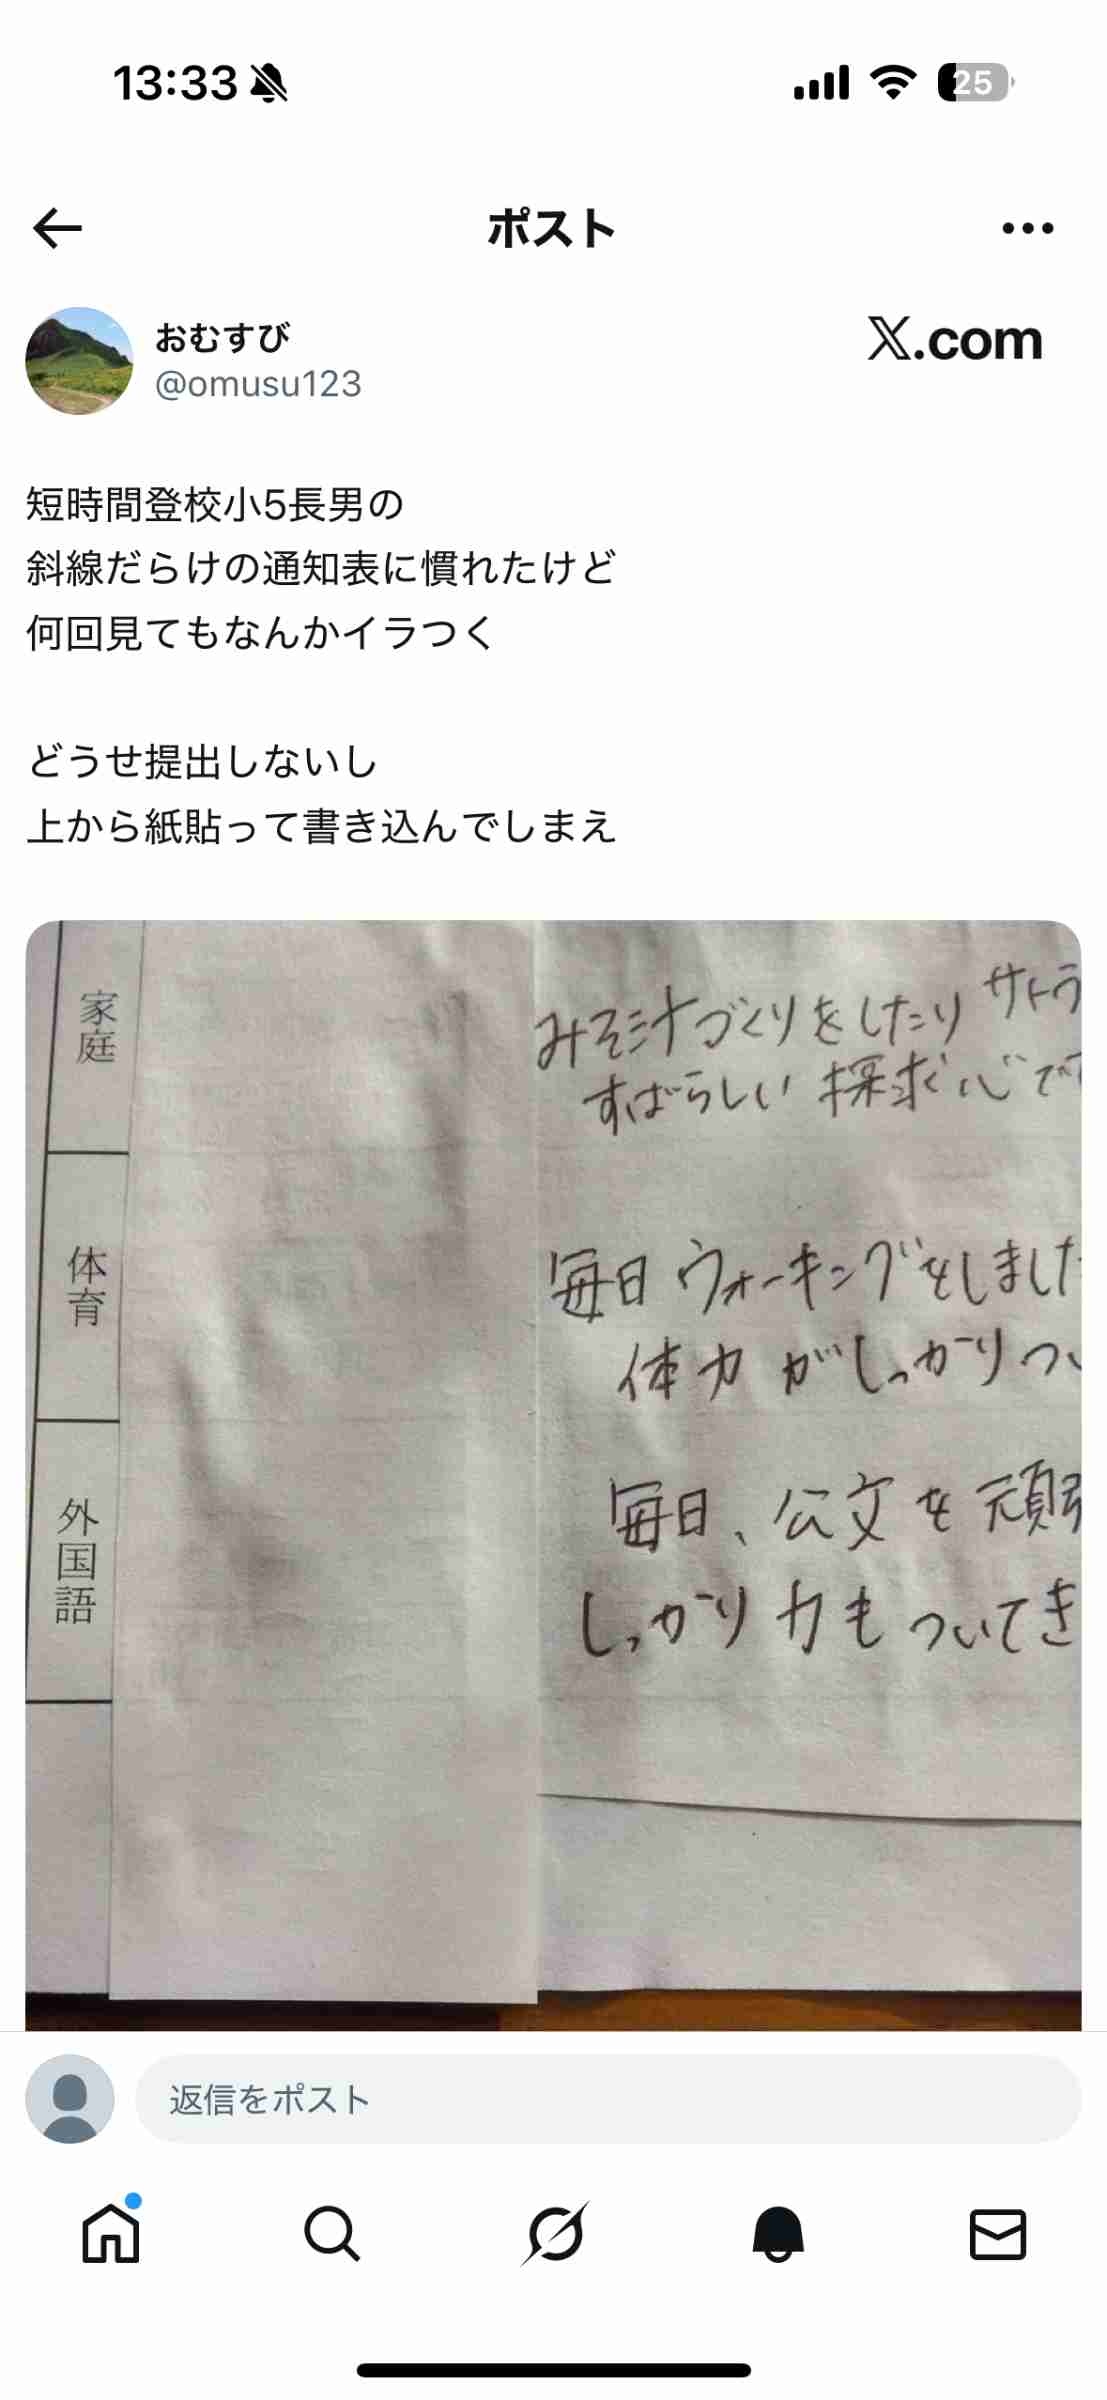 13:33
25
ポスト
おむすび
@omusu123
X.com
短時間登校小5長男の
斜線だらけの通知表に慣れたけど
何回見てもなんかイラつく
どうせ提出しないし
上から紙貼って書き込んでしまえ
家庭
みそ汁づくりをしたり サトラ
すばらしい 探求心で
体育
毎日 ウォーキングをしました
体力 がしっかりつ
外国語
毎日、公文を頑
しっかり力もついてき
返信をポスト